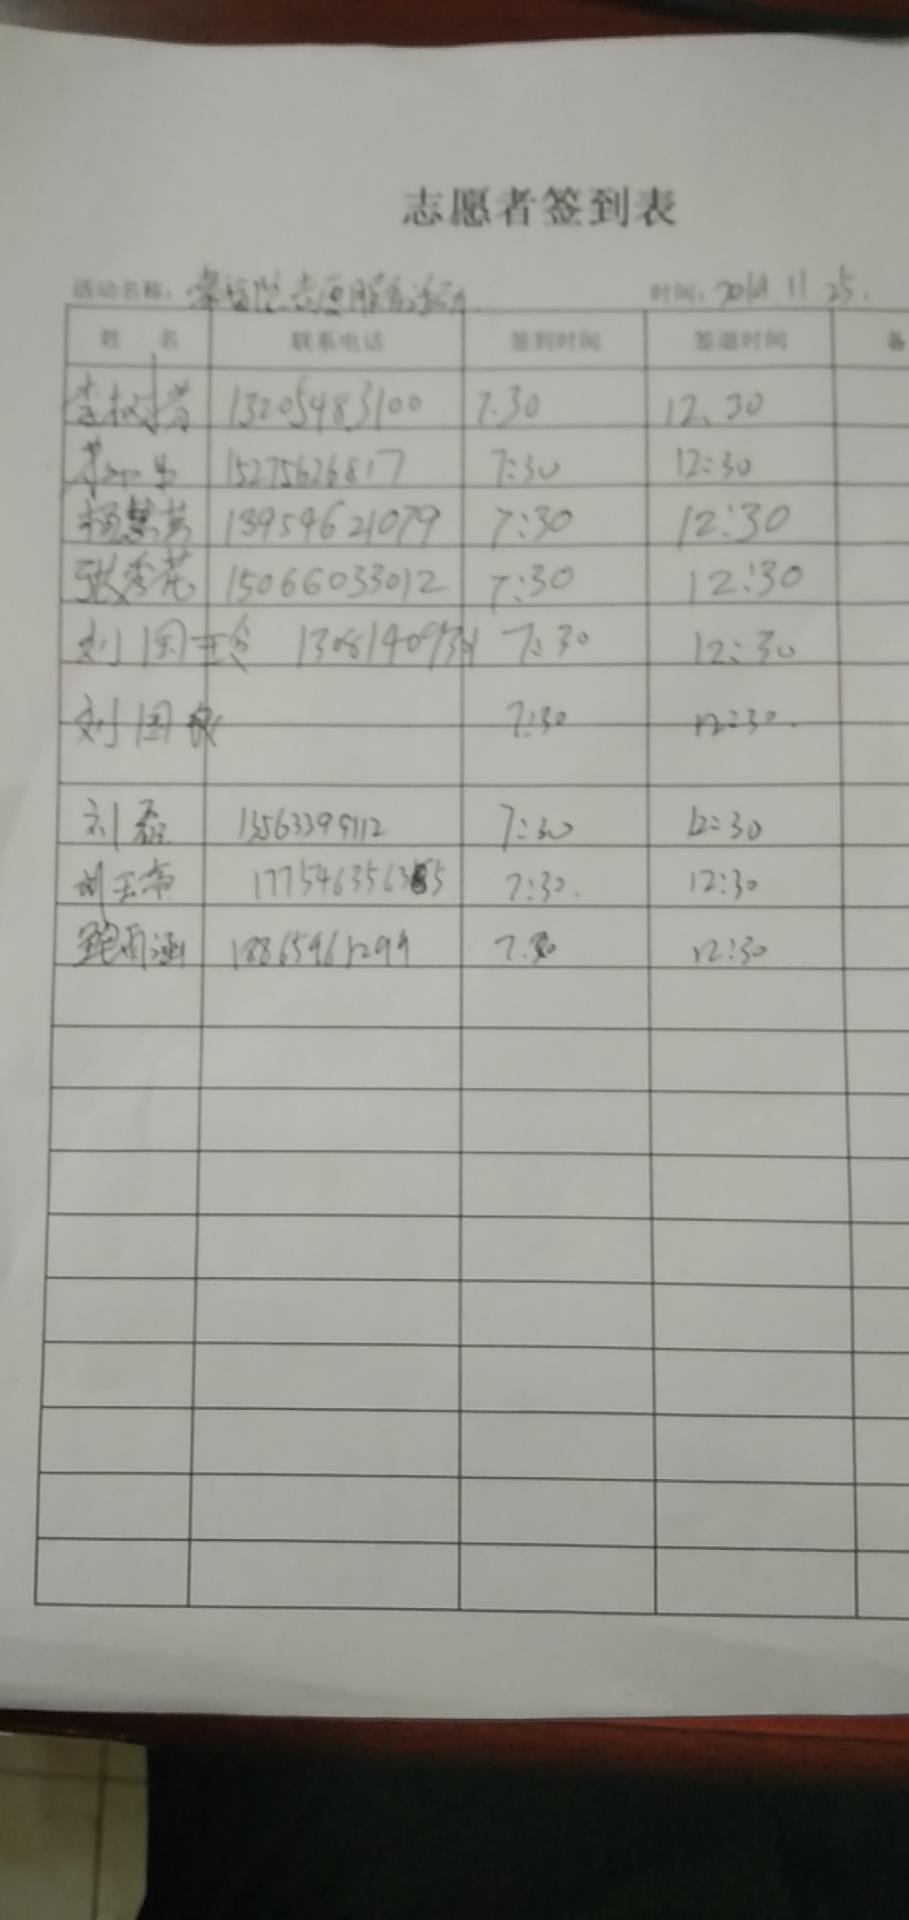 志愿者签到表
活动名称： 志愿服务活动 时间：2019.11.25.
姓 名 联系电话 签到时间 签退时间 备
13205483100 7.30 12.30
15275626817 7:30 12:30
杨慧芳 13954621079 7:30 12:30
张秀花 15066033012 7:30 12:30
刘国玲 7:30 12:30
刘国 7:30 12:30.
刘磊 7:30 12:30
7:30. 12:30
鲍雨涵 18865961299 7.30 12:30